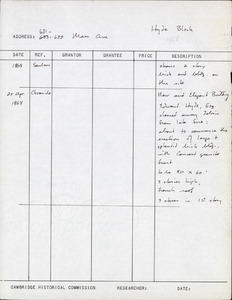 Hyde Block
681-
ADDRESS: 683-689 Mass Ave
DATE REF. GRANTOR GRANTEE PRICE DESCRIPTION
1868 shows 2 story
brick and bldg. on
the site
25 Apr Chronicle New and Elegant Building
1868 Edward Hyde, Esq.
cleared away debris
from late fire;
about to commence the
erection of large &
splendid brick bldg.,
with Concord granite
front
to be 80 x 60
3 stories high,
french roof
3 stores in 1st story
CAMBRIDGE HISTORICAL COMMISSION RESEARCHER: DATE: